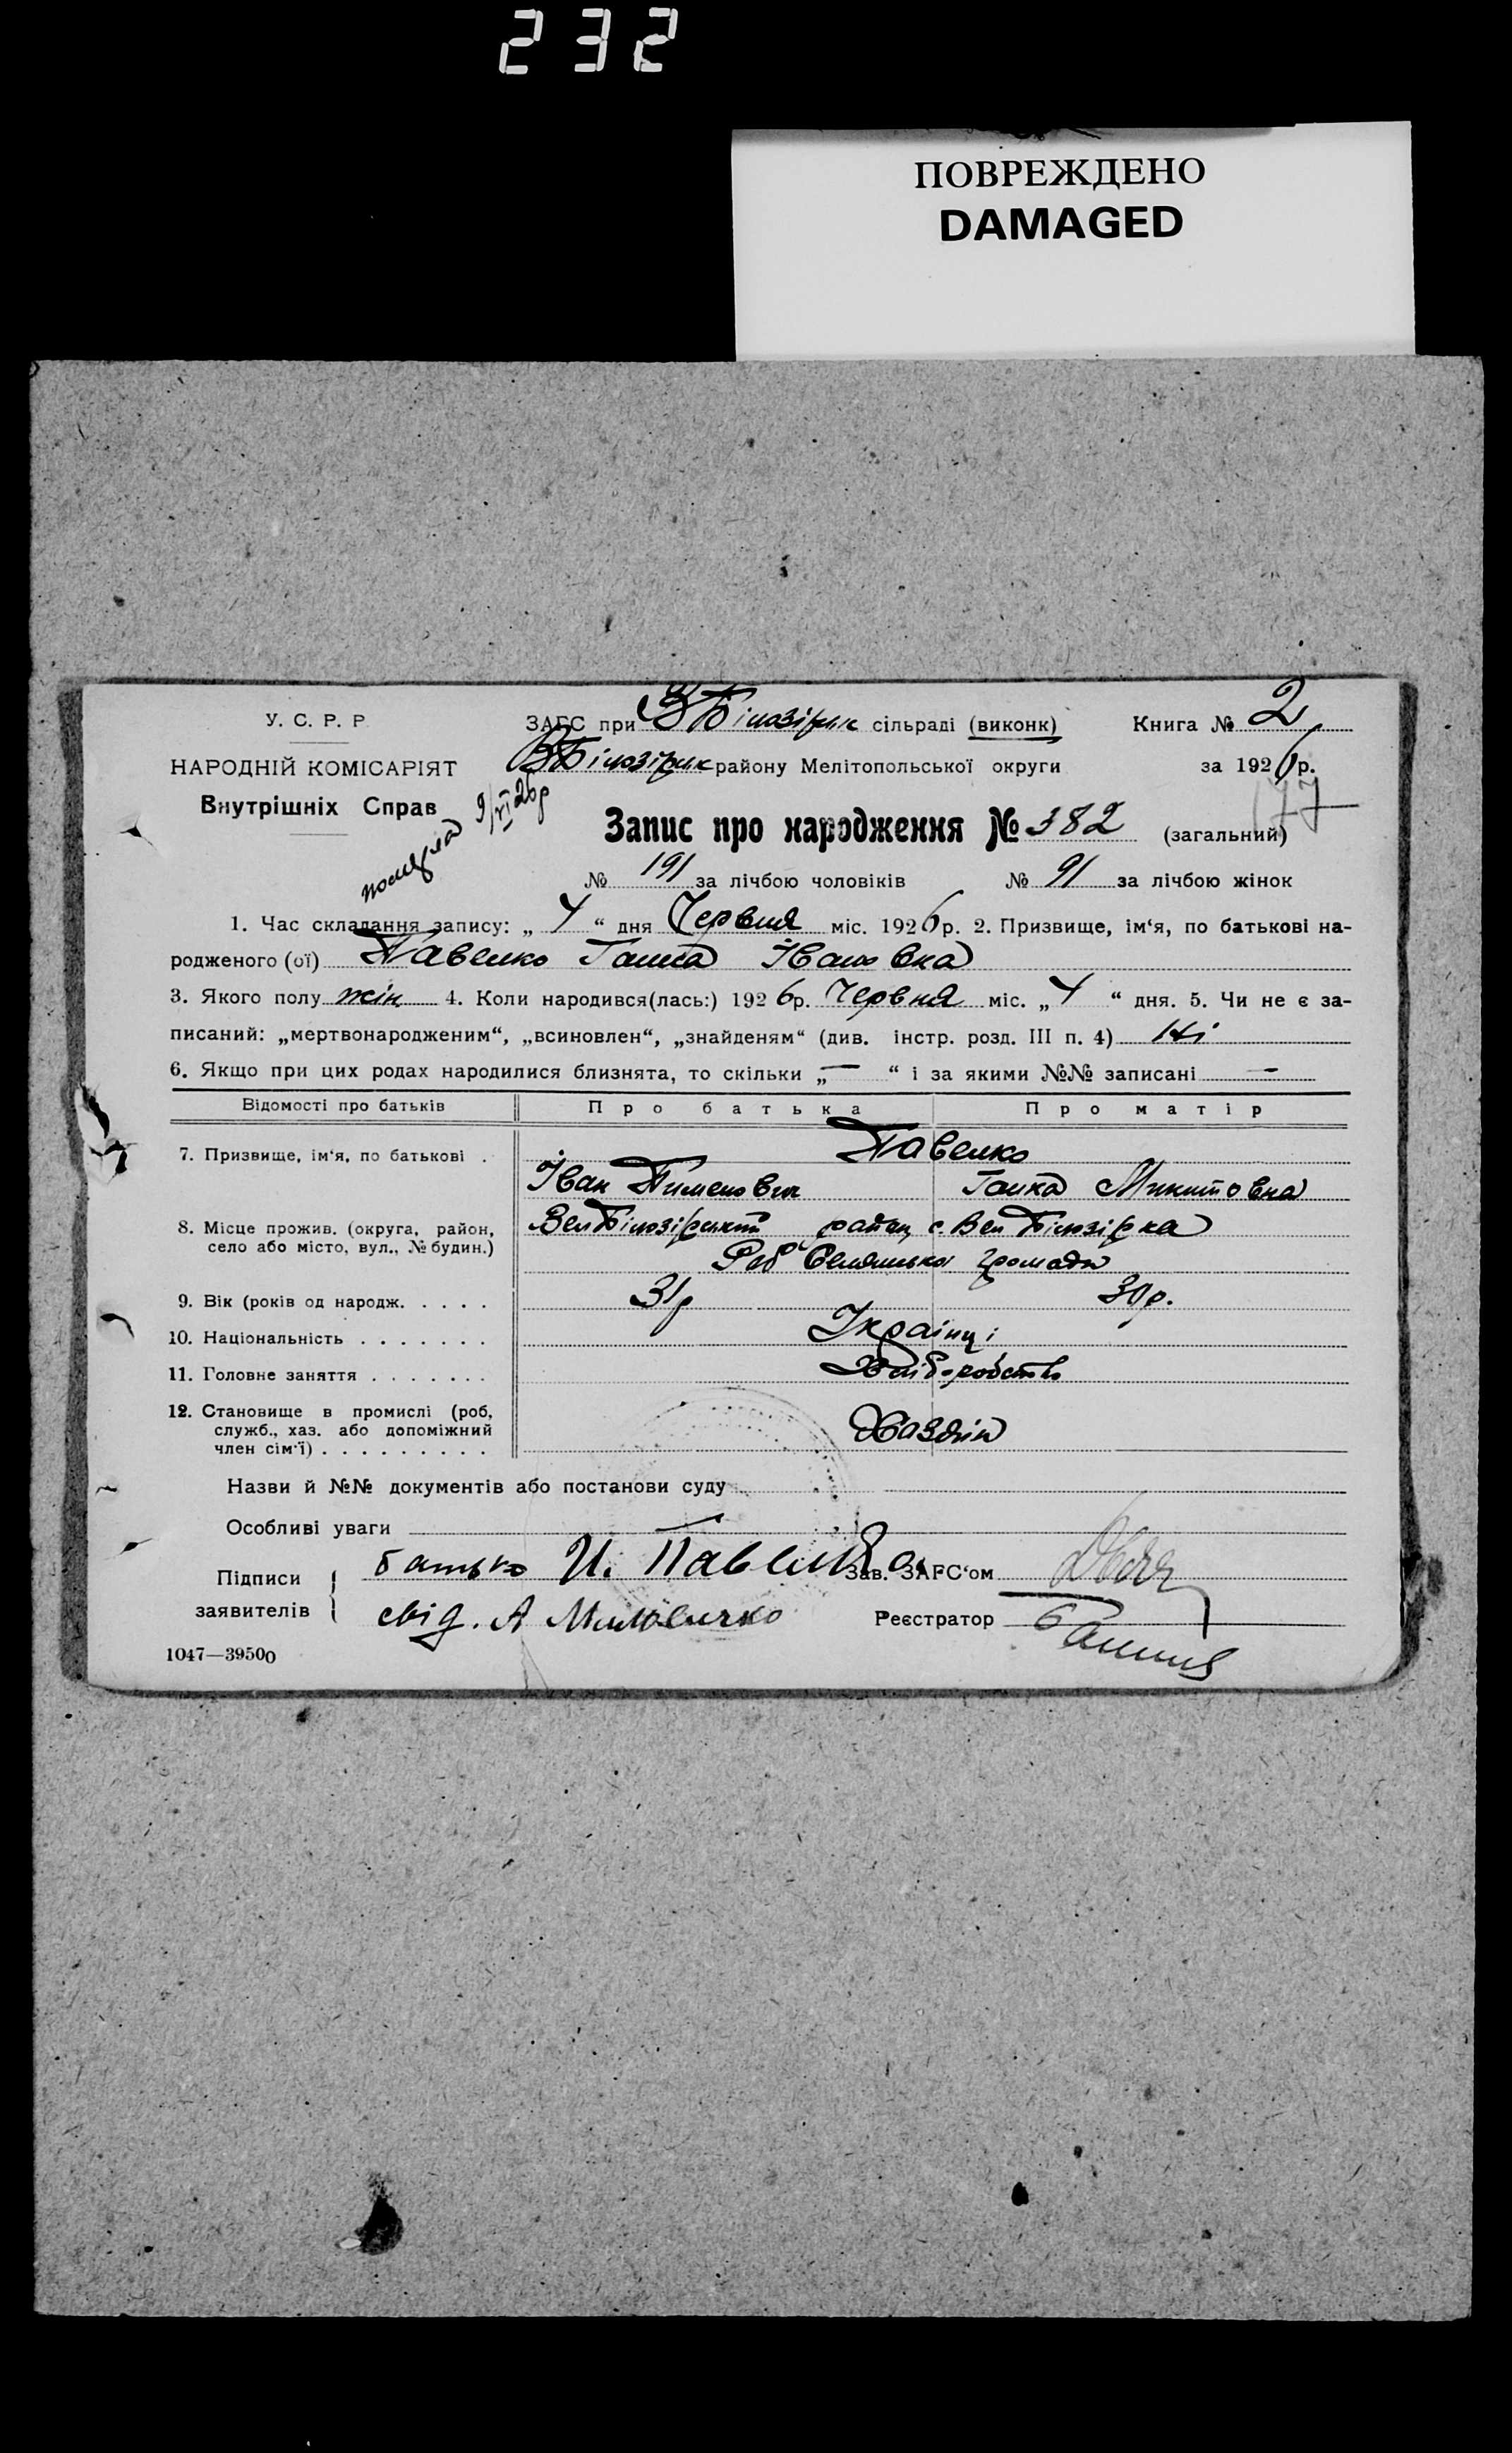 232
ПОВРЕЖДЕНО
DAMAGED
У. С. Р. Р.
НАРОДНІЙ КОМІСАРІЯТ
Внутрішніх Справ
9/VI 26р
ЗАГС при В Білозірик сільраді (виконк)
В Білозірик району Мелітопольської округи
Книга № 2
за 1926 р.
Запис про народження № 382 (загальний)
77
№ 191 за лічбою чоловіків № 91 за лічбою жінок
1. Час складання запису: „ 4 “ дня Червня міс. 1926 р. 2. Призвище, ім‘я, по батькові на-
родженого (ої) Павенко Ганна Івановна
3. Якого полу жін 4. Коли народився(лась:) 1926 р. Червня міс. „ 4 “ дня. 5. Чи не є за-
писаний: „мертвонародженим“, „всиновлен“, „знайденям“ (див. інстр. розд. III п. 4) Ні
6. Якщо при цих родах народилися близнята, то скільки „ — “ і за якими №№ записані —
Відомості про батьків Про батька Про матір
7. Призвище, ім‘я, по батькові . Павенко
Іван Пименович Ганна Микитовна
8. Місце прожив. (округа, район,
село або місто, вул., № будин.)
Вел Білозірський район, с. Вел Білозірка
Селянська громада
9. Вік (років од народж. . . . . 31р 30р.
10. Національність . . . . . . . Українці
11. Головне заняття . . . . . . . Хліборобство
12. Становище в промислі (роб,
служб., хаз. або допоміжний
член сім‘ї) . . . . . . . . . Хазяїн
Назви й №№ документів або постанови суду
Особливі уваги —
Підписи
заявителів
батько И. Павенко
свід. А
Зав. ЗАГС‘ом
Реєстратор
1047—39500